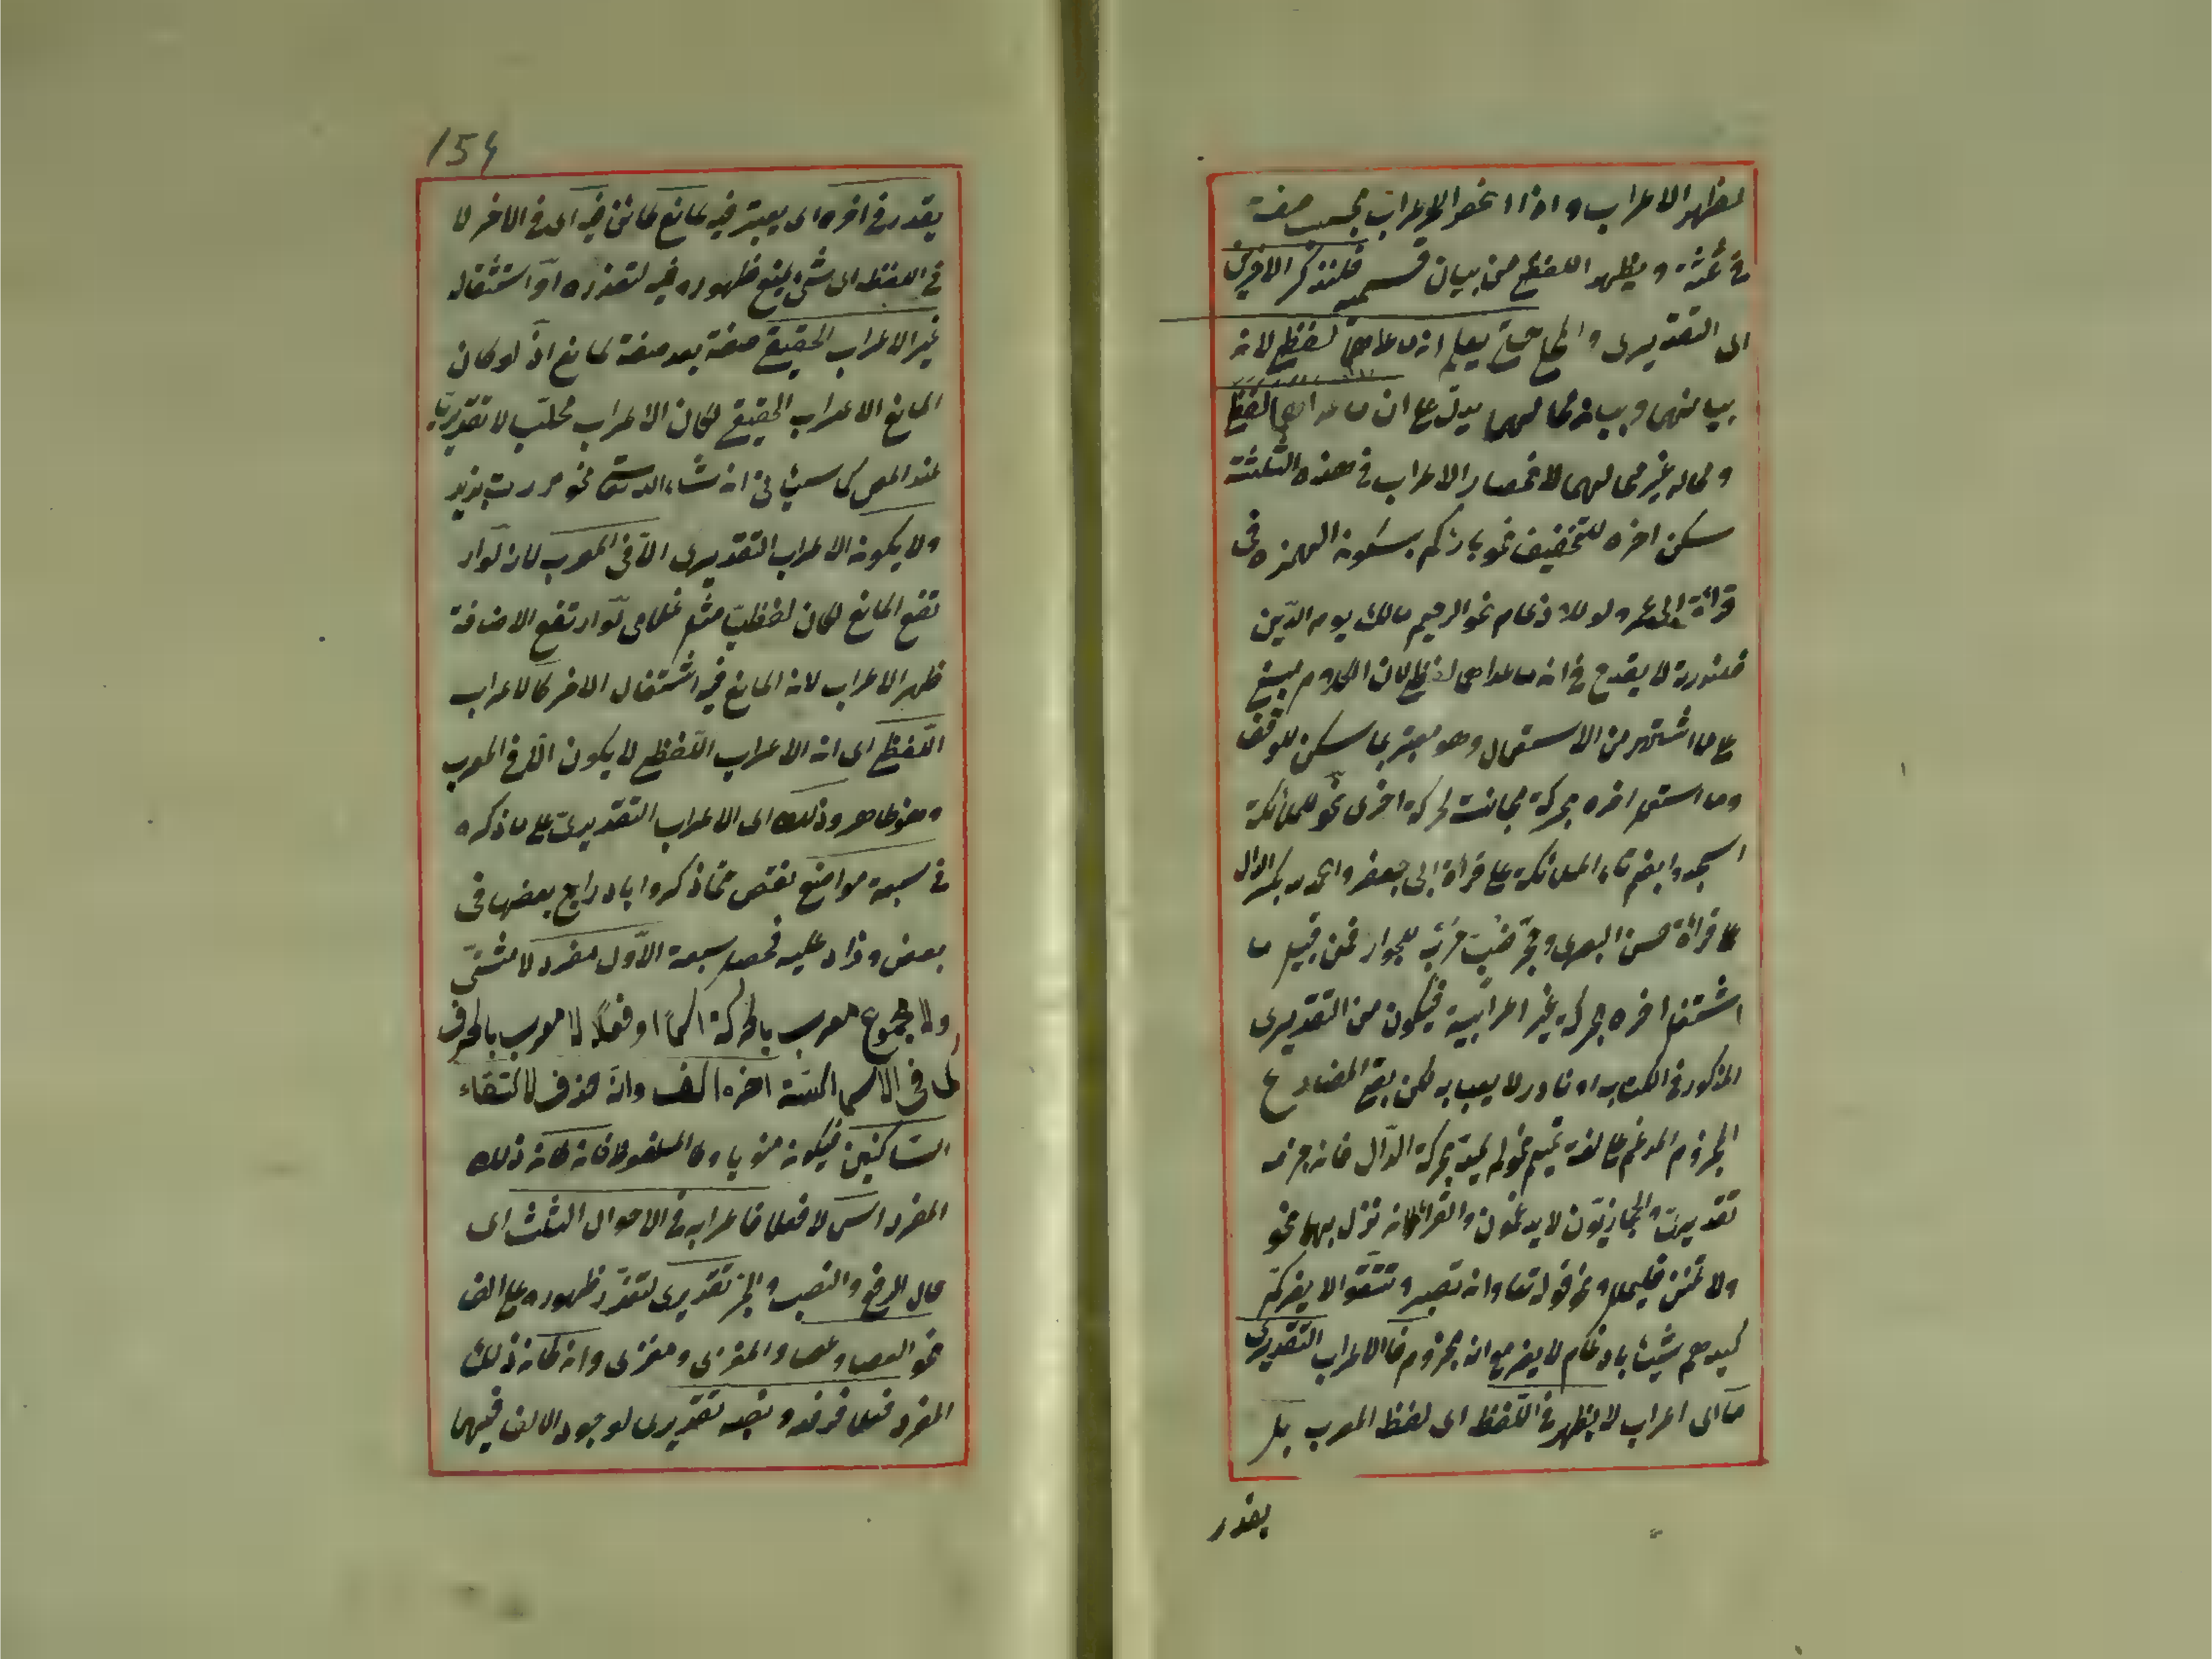 لظهر الاعراب واذا انحصر الاعراب بحسب صفته
في ثلثة ويظهر اللفظي من بيان قسميه فلنذكر الاخرين
اى التقديرى والمحلى حتى يعلم ان ما عداهما لفظى لانه
بيانهما وبيان محالهما يدل على ان ما عداهما لفظى
ومحاله غير محالهما لانحصار الاعراب في هذه الثلثة
سكن اخره للتخفيف نحو بارئكم بسكون الهمزه في
قرائة ابى عمرو او للادغام نحو الرحيم مالك يوم الدين
فلندرته لا يقدح في ان ما عداهما لفظى لان الكلام مبنى
على ما اشتهر من الاستعمال وهو معتبر بما سكن للوقف
وما استعمل اخره بحركة مجانسة لحركة اخرى نحو للملائكة
اسجدوا بضم تاء الملائكة على قرائة ابى جعفر والحمد لله بكسر الدال
على قرائة حسن البصرى وجحر ضب خرب للجوار فمن قبيل ما
اشتغل اخره بحركة غير اعرابية فيكون من التقديرى
المذكور في الكتاب او نادر لا يعبأ به لكن بقى المضارع
المجزوم المدغم على لغة تميم نحو لم يمد بحركة الدال فان جزمه
تقديرى والحجازيون لا يدغمون والقرآن نزل بها نحو
ولا تمنن تستكثر ونحو قوله تعا وان تصبروا وتتقوا لا يضركم
كيدهم شيئا بادغام لا يضر مع انه مجزوم فالاعراب التقديرى
ما اى اعراب لا يظهر في اللفظ اى لفظ المعرب بل
يقدر
154
يقدر في اخره اى يعتبر فيه لمانع كائن فيه اى في الاخر لا
في اللفظ اى شئ يمنع ظهوره فيه لتعذره او استثقال
غير الاعراب الحقيقى صفة بعد صفة لمانع اذ لو كان
المانع الاعراب الحقيقى لكان الاعراب محليا لا تقديريا
عند المص كما سيجئ ان شاء الله تعا نحو مررت بزيد
ولا يكون الاعراب التقديرى الا في المعرب لانه لو ار
تفع المانع لكان لفظيا مثل غلامى لو ارتفع الاضافة
ظهر الاعراب لان المانع فيه اشتغال الاخر كالاعراب
اللفظى اى ان الاعراب اللفظى لا يكون الا في المعرب
وهو ظاهر وذلك اى الاعراب التقديرى على ما ذكره
في سبعة مواضع نقص مما ذكروا بادراج بعضها في
بعض وزاد عليه فحصل سبعة الاول مفرد لا مثنى
ولا مجموع معرب بالحركة اسما او فعلا لا معرب بالحرف
كما في الاسماء الستة اخره الف وان حذف لالتقاء
الساكنين فيكون منويا وكالملفوظ فان كان ذلك
المفرد اسما لا فعلا فاعرابه في الاحوال الثلث اى
حال الرفع والنصب والجر تقديرى لتعذر ظهوره على الف
نحو العصا وعصا والمغزى ومغزى وان كان ذلك
المفرد فعلا فرفعه ونصبه تقديرى لوجود الالف فيهما